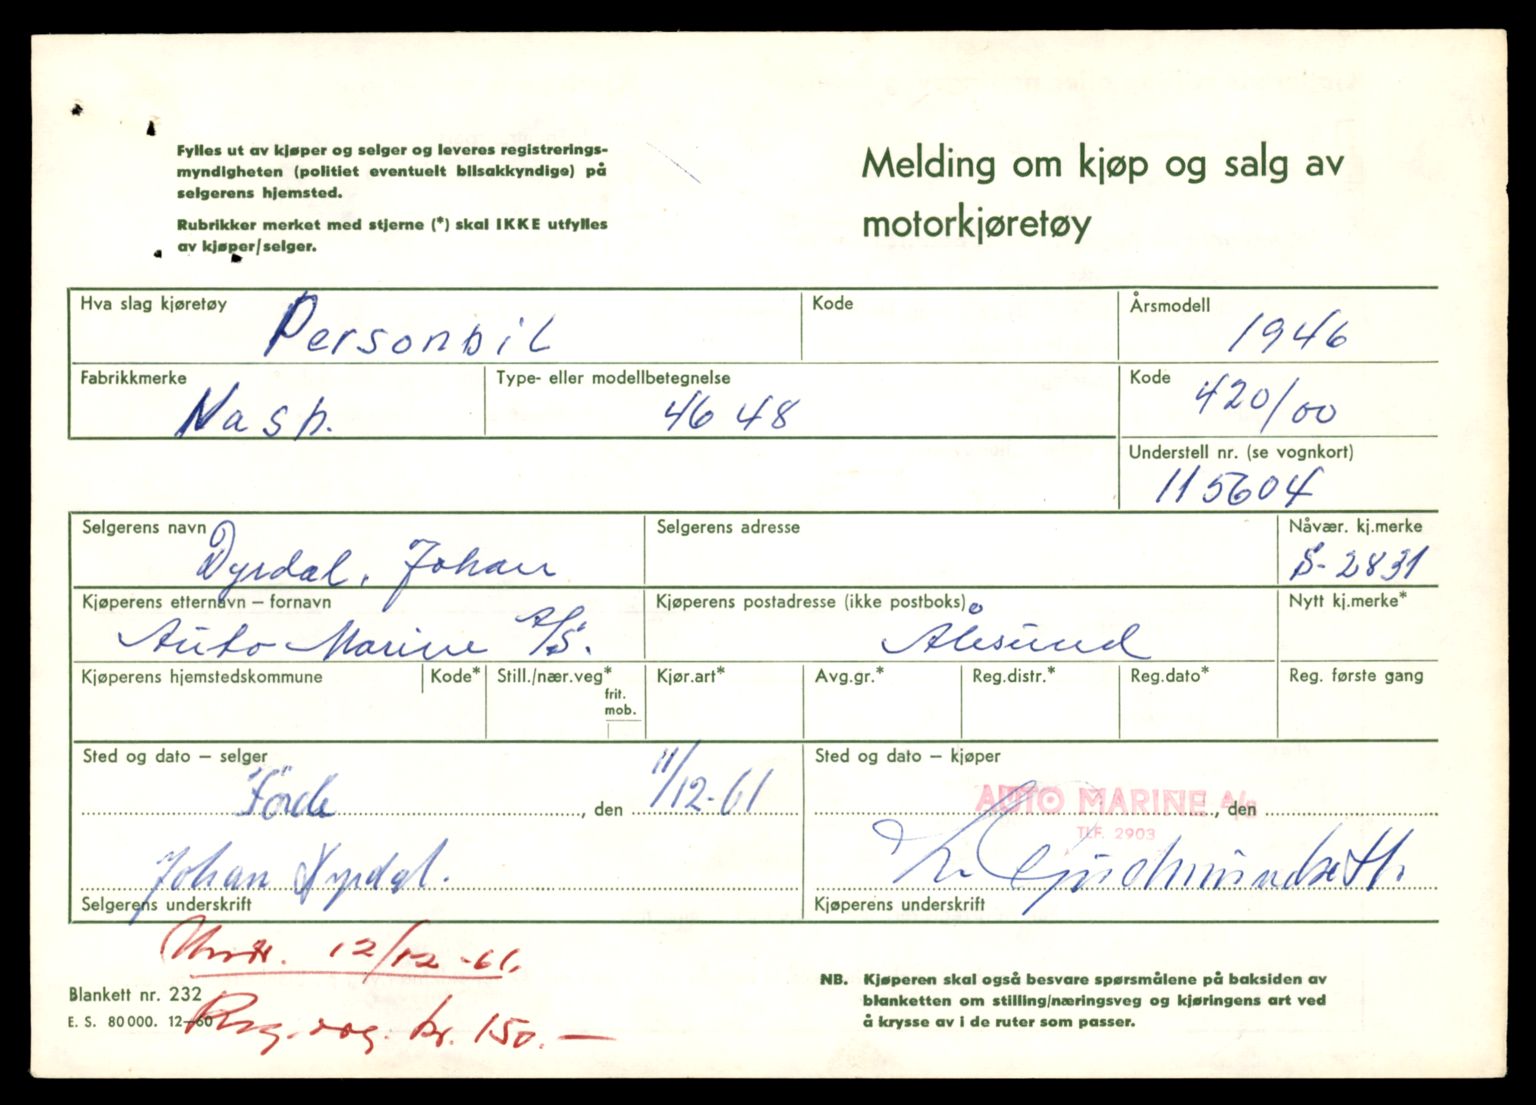 Fylles ut av kjøper og selger og leveres registrerings-
myndigheten (politiet eventuelt bilsakkyndige) på
selgerens hjemsted.
Rubrikker merket med stjerne (*) skal IKKE utfylles
av kjøper/selger.
Melding om kjøp og salg av
motorkjøretøy
Hva slag kjøretøy
Personbil
Kode
Årsmodell
1946
Fabrikkmerke
Nash.
Type- eller modellbetegnelse
46 48
Kode
420/00
Understell nr. (se vognkort)
115604
Selgerens navn
Dyrdal, Johan
Selgerens adresse
Nåvær. kj.merke
S-2831
Kjøperens etternavn – fornavn
Auto Marine A/S.
Kjøperens postadresse (ikke postboks)
Ålesund
Nytt kj.merke*
Kjøperens hjemstedskommune
Kode*
Still./nær.veg*
frit.
mob.
Kjør.art*
Avg.gr.*
Reg.distr.*
Reg.dato*
Reg. første gang
Sted og dato – selger
Förde, den 11/12-61
Sted og dato – kjøper
AUTO MARINE A/S, den
TLF. 2903
Johan Dyrdal.
Selgerens underskrift
Kjøperens underskrift
12/12-61.
Blankett nr. 232
E. S. 80000. 12-60
kr. 150.—
NB. Kjøperen skal også besvare spørsmålene på baksiden av
blanketten om stilling/næringsveg og kjøringens art ved
å krysse av i de ruter som passer.